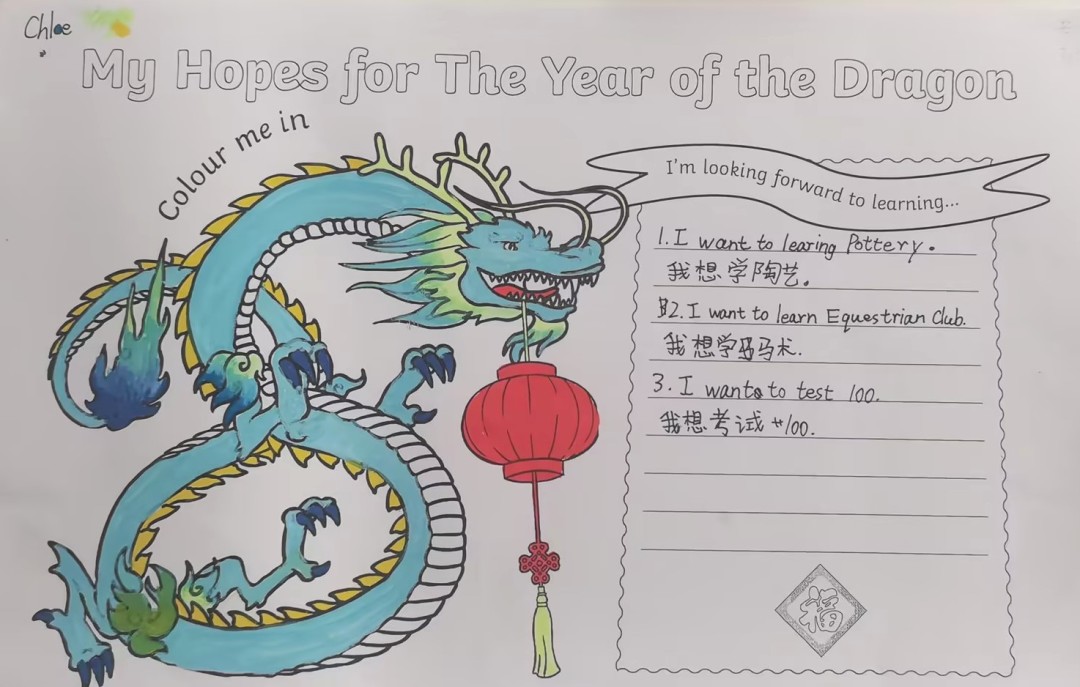 Chloe
My Hopes for The Year of the Dragon
Colour me in
I'm looking forward to learning...
1. I want to learing Pottery.
我想学陶艺。
2. I want to learn Equestrian Club.
我想学马术.
3. I wants to test 100.
我想考试 100.
福